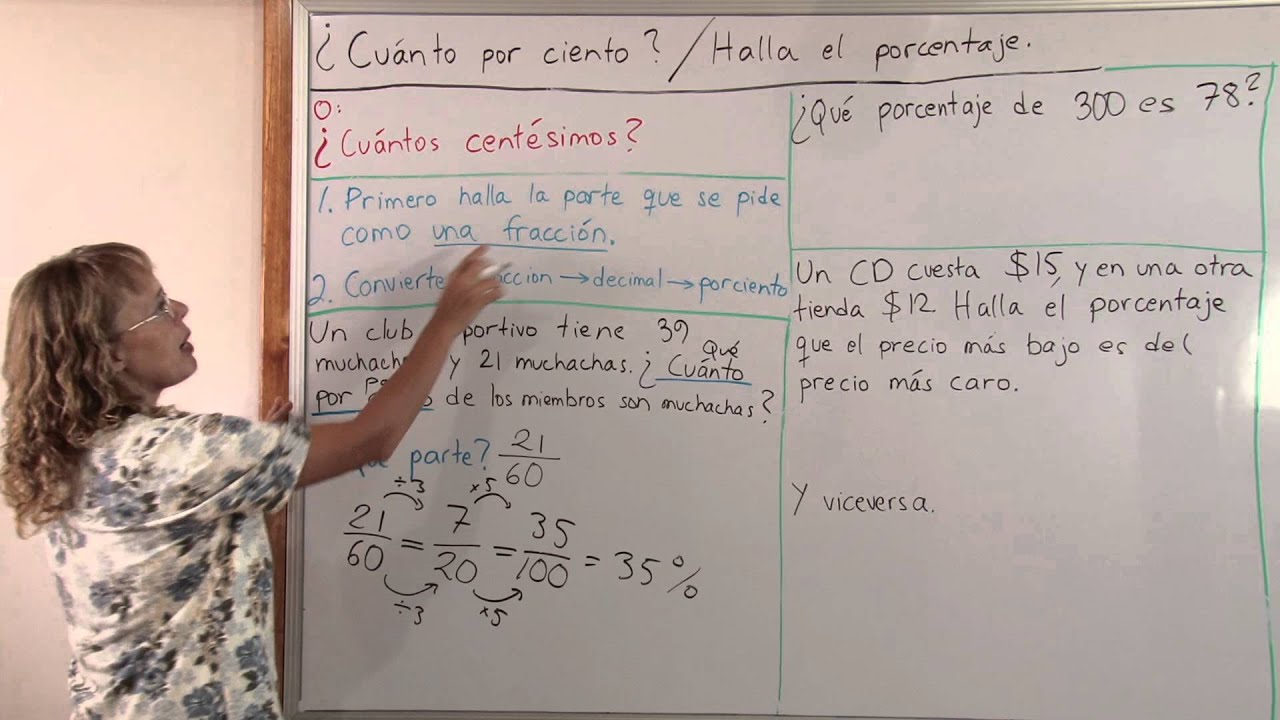 ¿Cuánto por ciento? / Halla el porcentaje.
O:
¿Cuántos centésimos?
1. Primero halla la parte que se pide
como una fracción.
2. Convierte → decimal → porciento
Un club tiene 39
y 21 muchachas. ¿ Qué Cuánto
por de los miembros son muchachas?
parte? 21/60
÷3 ×5
21/60 = 7/20 = 35/100 = 35%
÷3 ×5
¿Qué porcentaje de 300 es 78?
Un CD cuesta $15, y en una otra
tienda $12. Halla el porcentaje
que el precio más bajo es del
precio más caro.
Y viceversa.